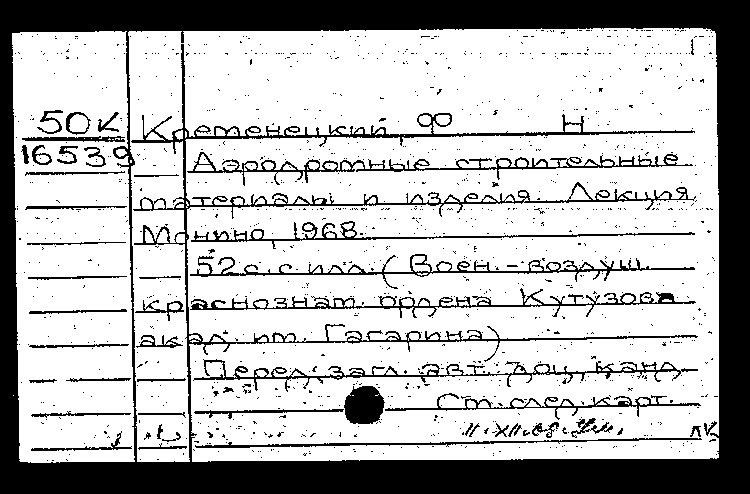 50К Кременецкий, Ф Н
16539 Аэродромные строительные
материалы и изделия. Лекция
Монино, 1968.
52 с. с илл. (Воен.-воздуш.
краснознам. ордена Кутузова
акад. им. Гагарина)
Перед. загл. авт. доц., канд.
См. след. карт.
11.XII.68.
лк